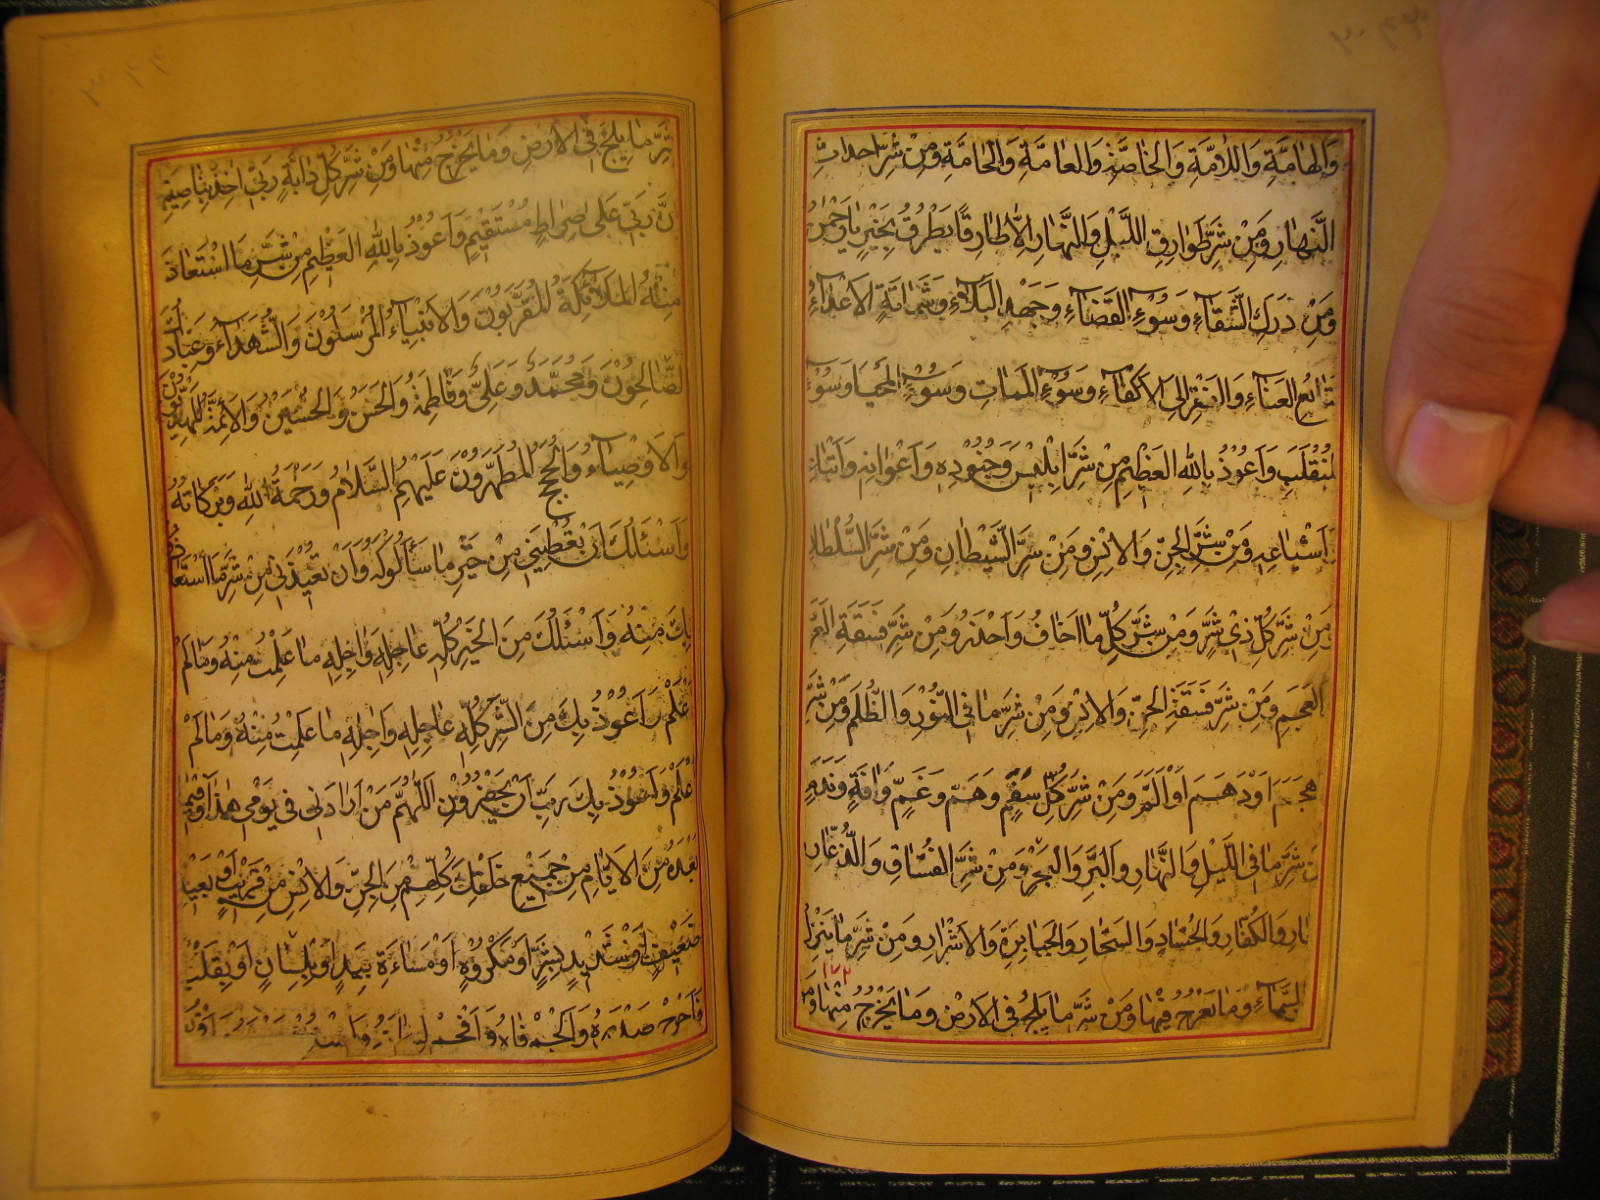 وَالْهَامَّةِ وَاللَّامَّةِ وَالْخَاصَّةِ وَالْعَامَّةِ وَالْحَامَّةِ وَمِنْ شَرِّ اَحْدَاثِ
النَّهَارِ وَمِنْ شَرِّ طَوَارِقِ اللَّيْلِ وَالنَّهَارِ اِلَّا طَارِقًا يَطْرُقُ بِخَيْرٍ يَا رَحْمٰنُ
وَمِنْ دَرَكِ الشَّقَاۤءِ وَسُوۤءِ الْقَضَاۤءِ وَجَهْدِ الْبَلَاۤءِ وَشَمَاتَةِ الْاَعْدَاۤءِ
تَتَابُعِ الْعَنَاۤءِ وَالْفَقْرِ اِلَى الْاَكْفَاۤءِ وَسُوۤءِ الْمَمَاتِ وَسُوۤءِ الْمَحْيَا وَسُوۤءِ
الْمُنْقَلَبِ وَاَعُوْذُ بِاللهِ الْعَظِيْمِ مِنْ شَرِّ اِبْلِيْسَ وَجُنُوْدِهٖ وَاَعْوَانِهٖ وَاَتْبَاعِهٖ
وَاَشْيَاعِهٖ وَمِنْ شَرِّ الْجِنِّ وَالْاِنْسِ وَمِنْ شَرِّ الشَّيْطَانِ وَمِنْ شَرِّ السُّلْطَانِ
وَمِنْ شَرِّ كُلِّ ذِيْ شَرٍّ وَمِنْ شَرِّ كُلِّ مَا اَخَافُ وَاَحْذَرُ وَمِنْ شَرِّ فَسَقَةِ الْعَرَبِ
الْعَجَمِ وَمِنْ شَرِّ فَسَقَةِ الْجِنِّ وَالْاِنْسِ وَمِنْ شَرِّ مَا فِي النُّوْرِ وَالظُّلَمِ وَمِنْ شَرِّ
هَجَمَ اَوْ دَهَمَ اَوْ اَلَمَّ وَمِنْ شَرِّ كُلِّ سَقَمٍ وَهَمٍّ وَغَمٍّ وَاٰفَةٍ وَنَدَمٍ
مِنْ شَرِّ مَا فِي اللَّيْلِ وَالنَّهَارِ وَالْبَرِّ وَالْبَحْرِ وَمِنْ شَرِّ الْفُسَّاقِ وَالذُّعَّارِ
وَالْكُفَّارِ وَالْحُسَّادِ وَالسُّحَّارِ وَالْجَبَابِرَةِ وَالْاَشْرَارِ وَمِنْ شَرِّ مَا يَنْزِلُ
السَّمَاۤءِ وَمَا يَعْرُجُ فِيْهَا وَمِنْ شَرِّ مَا يَلِجُ فِي الْاَرْضِ وَمَا يَخْرُجُ مِنْهَا وَمِنْ
شَرِّ مَا يَلِجُ فِي الْاَرْضِ وَمَا يَخْرُجُ مِنْهَا وَمِنْ شَرِّ كُلِّ دَابَّةٍ رَبِّيْ اٰخِذٌ بِنَاصِيَتِهَا
اِنَّ رَبِّيْ عَلٰى صِرَاطٍ مُسْتَقِيْمٍ وَاَعُوْذُ بِاللهِ الْعَظِيْمِ مِنْ شَرِّ مَا اسْتَعَاذَ
مِنْهُ الْمَلَاۤئِكَةُ الْمُقَرَّبُوْنَ وَالْاَنْبِيَاۤءُ الْمُرْسَلُوْنَ وَالشُّهَدَاۤءُ وَعِبَادُ اللهِ
الصَّالِحُوْنَ وَمُحَمَّدٌ وَعَلِيٌّ وَفَاطِمَةُ وَالْحَسَنُ وَالْحُسَيْنُ وَالْاَئِمَّةُ الْمَهْدِيُّوْنَ
وَالْاَوْصِيَاۤءُ وَالْحُجَجُ الْمُطَهَّرُوْنَ عَلَيْهِمُ السَّلَامُ وَرَحْمَةُ اللهِ وَبَرَكَاتُهُ
وَاَسْئَلُكَ اَنْ تُعْطِيَنِيْ مِنْ خَيْرِ مَا سَأَلُوْكَهُ وَاَنْ تُعِيْذَنِيْ مِنْ شَرِّ مَا اسْتَعَاذُوْا
بِكَ مِنْهُ وَاَسْئَلُكَ مِنَ الْخَيْرِ كُلِّهٖ عَاجِلِهٖ وَاٰجِلِهٖ مَا عَلِمْتُ مِنْهُ وَمَا لَمْ
اَعْلَمْ وَاَعُوْذُ بِكَ مِنَ الشَّرِّ كُلِّهٖ عَاجِلِهٖ وَاٰجِلِهٖ مَا عَلِمْتُ مِنْهُ وَمَا لَمْ
اَعْلَمْ وَاَعُوْذُ بِكَ رَبِّ اَنْ يَحْضُرُوْنِ اَللّٰهُمَّ مَنْ اَرَادَنِيْ فِيْ يَوْمِيْ هٰذَا وَفِيْمَا
بَعْدَهُ مِنَ الْاَيَّامِ مِنْ جَمِيْعِ خَلْقِكَ كُلِّهِمْ مِنَ الْجِنِّ وَالْاِنْسِ مِنْ قَرِيْبٍ اَوْ بَعِيْدٍ
ضَعِيْفٍ اَوْ شَدِيْدٍ بِشَرٍّ اَوْ مَكْرُوْهٍ اَوْ مَسَاءَةٍ بِيَدٍ اَوْ بِلِسَانٍ اَوْ بِقَلْبٍ
فَاَحْرِجْ صَدْرَهُ وَاَلْجِمْ فَاهُ وَاَفْحِمْ لِسَانَهُ